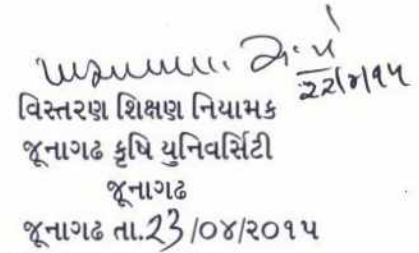 ૨૨/૪/૧૫
વિસ્તરણ શિક્ષણ નિયામક
જૂનાગઢ કૃષિ યુનિવર્સિટી
જૂનાગઢ
જૂનાગઢ તા.23/૦૪/૨૦૧૫